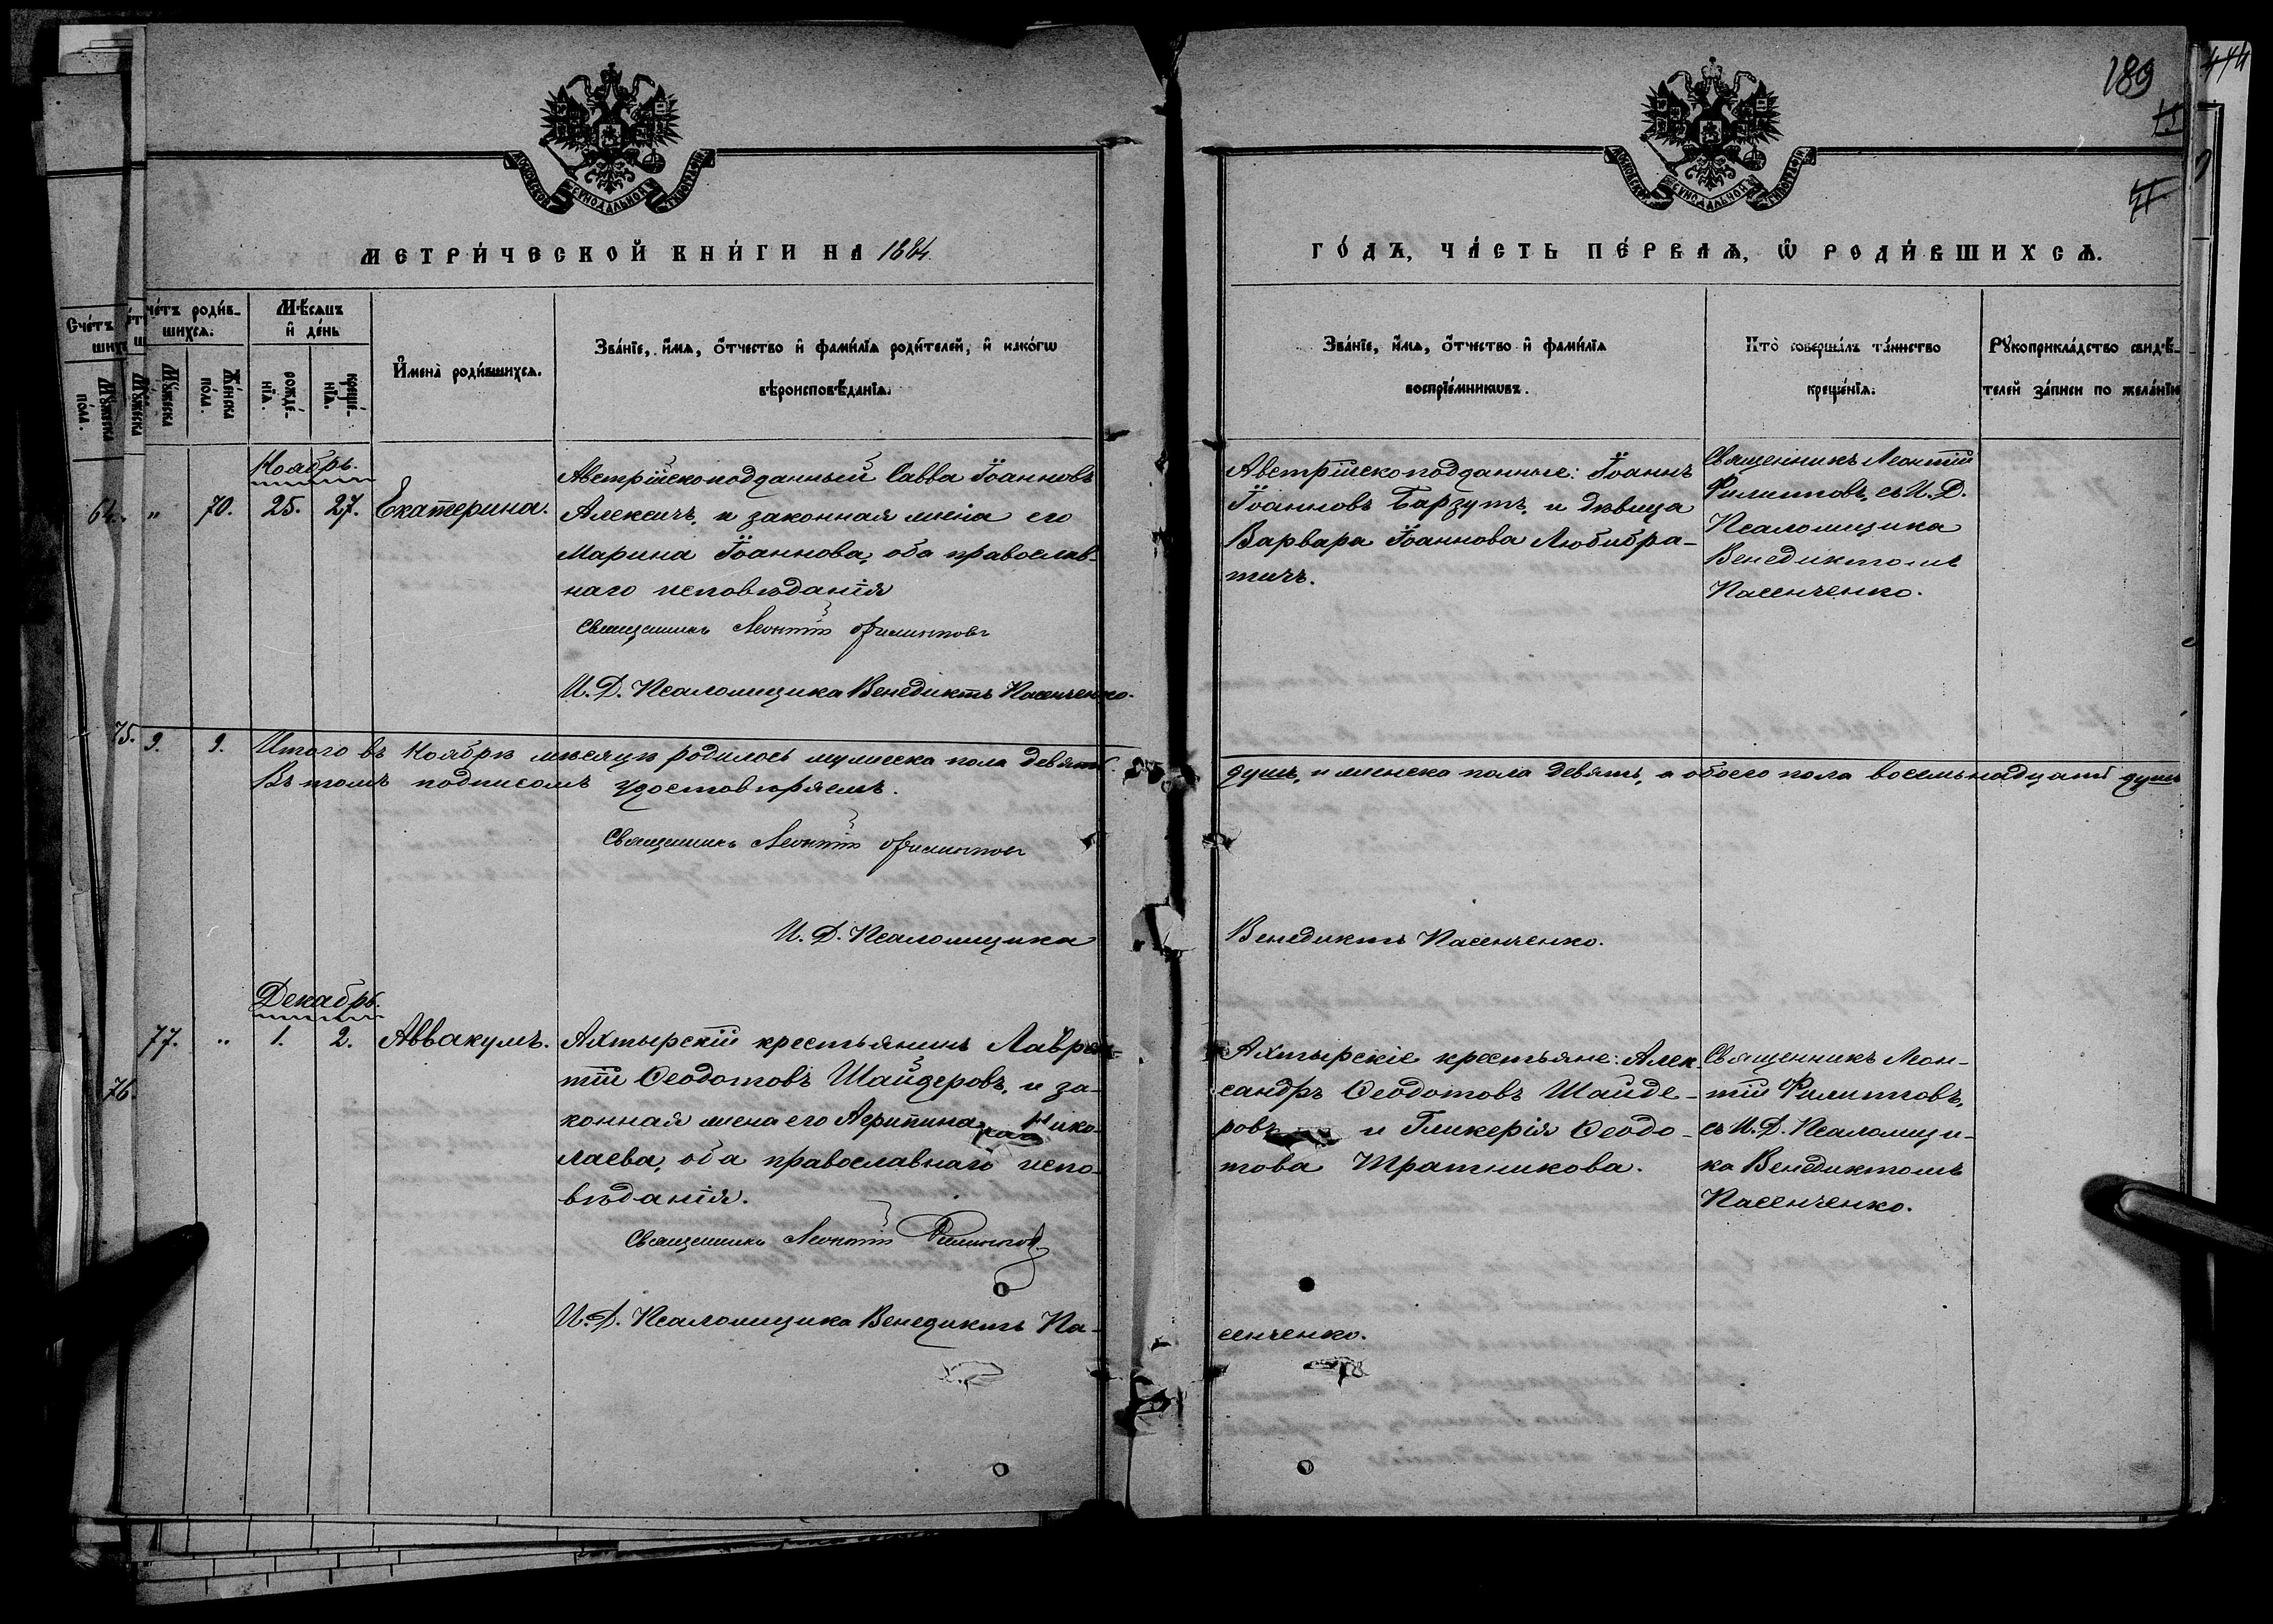 189
МОСКОВСКОЙ СѴНОДАЛЬНОЙ ТИПОГРАФІИ
МОСКОВСКОЙ СѴНОДАЛЬНОЙ ТИПОГРАФІИ
МЕТРИ́ЧЕСКОЙ КНИ́ГИ НА 1884
ГО́ДЪ, ЧА́СТЬ ПЕ́РВАѦ, Ѽ РОДИ́ВШИХСѦ.
Счетъ роди́в-
шихсѧ.
Мꙋ́жеска
Же́нска
по́ла.
Мѣ́сѧцъ
и҆ де́нь
рожде́-
нїѧ.
креще́-
нїѧ.
И҆мена̀ роди́вшихсѧ.
Зва́нїе, и҆́мѧ, ѻ҆́тчество и҆ фами́лїѧ роди́телей, и҆ како́гѡ
вѣроисповѣ́данїѧ.
Зва́нїе, и҆́мѧ, ѻ҆́тчество и҆ фами́лїѧ
воспрїе́мникѡвъ.
Кто̀ соверша́лъ та́инство
креще́нїѧ.
Рꙋкоприкла́дство свидѣ́-
телей за́писи по жела́нїю
Ноябрь.
64.
"
70.
25.
27.
Екатерина.
Австрійскоподданный Савва Іоанновъ
Алексичъ, и законная жена его
Марина Іоаннова, оба православ-
наго исповѣданія
Священникъ Леонтій Филипповъ
И. Д. Псаломщика Венедиктъ Пасенченко.
Австрійскоподданные: Іоаннъ
Іоанновъ Барзутъ, и дѣвица
Варвара Іоаннова Любибра-
тичъ.
Священникъ Леонтій
Филипповъ, съ И. Д.
Псаломщика
Венедиктомъ
Пасенченко.
75.
9.
9.
Итого въ Ноябрѣ мѣсяцѣ родилось мужеска пола девять
душъ, и женска пола девять, а обоего пола восемьнадцать душъ
Въ томъ подписомъ удостовѣряемъ.
Священникъ Леонтій Филипповъ
И. Д. Псаломщика
Венедиктъ Пасенченко.
Декабрь.
77.
"
1.
2.
Аввакумъ.
76.
Ахтырскій крестьянинъ Лаврен-
тій Ѳеодотовъ Шайдеровъ, и за-
конная жена его Агрипина Нико-
лаева, оба православнаго испо-
вѣданія.
Священникъ Леонтій Филипповъ
И. Д. Псаломщика Венедиктъ Па-
сенченко.
Ахтырскіе крестьяне: Алек-
сандръ Ѳеодотовъ Шайде-
ровъ и Гликерія Ѳеодо-
това Тратникова.
Священникъ Леон-
тій Филипповъ,
съ И. Д. Псаломщи-
ка Венедиктомъ
Пасенченко.